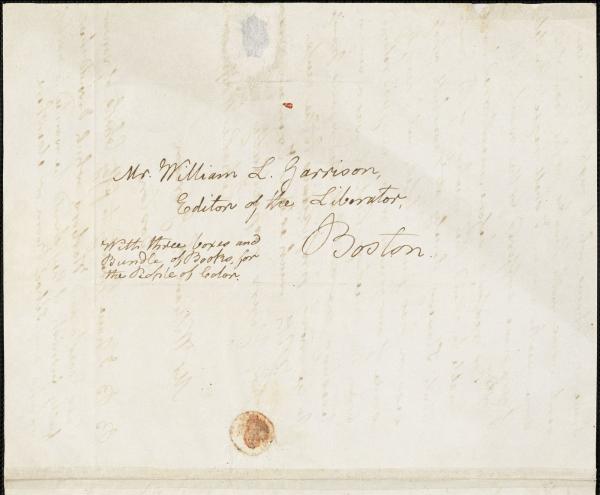 Mr. William L. Garrison,
Editor of the Liberator,
Boston.
With three boxes and
Bundle of Books, for
the Pople of Color.